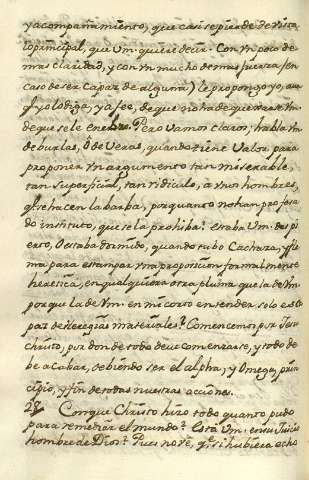 y acompañamiento, que casi se pierde de vista
lo principal, que Vm. quiere decir. Con vn poco de
mas claridad, y con vn mucho de mas fuerza (en
caso de ser capaz de alguna) le propongo yo, aun
q̃ yo lo diga, y a fee, de que no ha de quexarse Vm.
de que se le enerbe. Pero vamos claros, habla Vm.
de burlas, ò de veras, quando tiene valor, para
proponer vn argumento tan miserable,
tan superficial, tan ridiculo, a vnos hombres,
q̃ se hacen la barba, por quanto no han profesa
do instituto, que se la prohiba? estaba Vm. despi
erto, ò estaba dormido, quando tubo cachaza, y fle
ma para estampar vna proposicion formalmente
heretica, en qualquiera otra pluma que la de Vm.
porque la de Vm. en mi corto entender, solo es ca
paz de heregias materiales? Comencemos por Jesu
christo, por don de todo deve comenzarse, y todo de
be acabar, debiendo ser el alpha, y Omega, prin
cipio, y fin de todas nuestras acciones.
28 Conque Christo hizo todo quanto pudo
para remediar el mundo? Està Vm. en su Juicio
hombre de Dios? Pues no vé, q̃ si hubiera echo